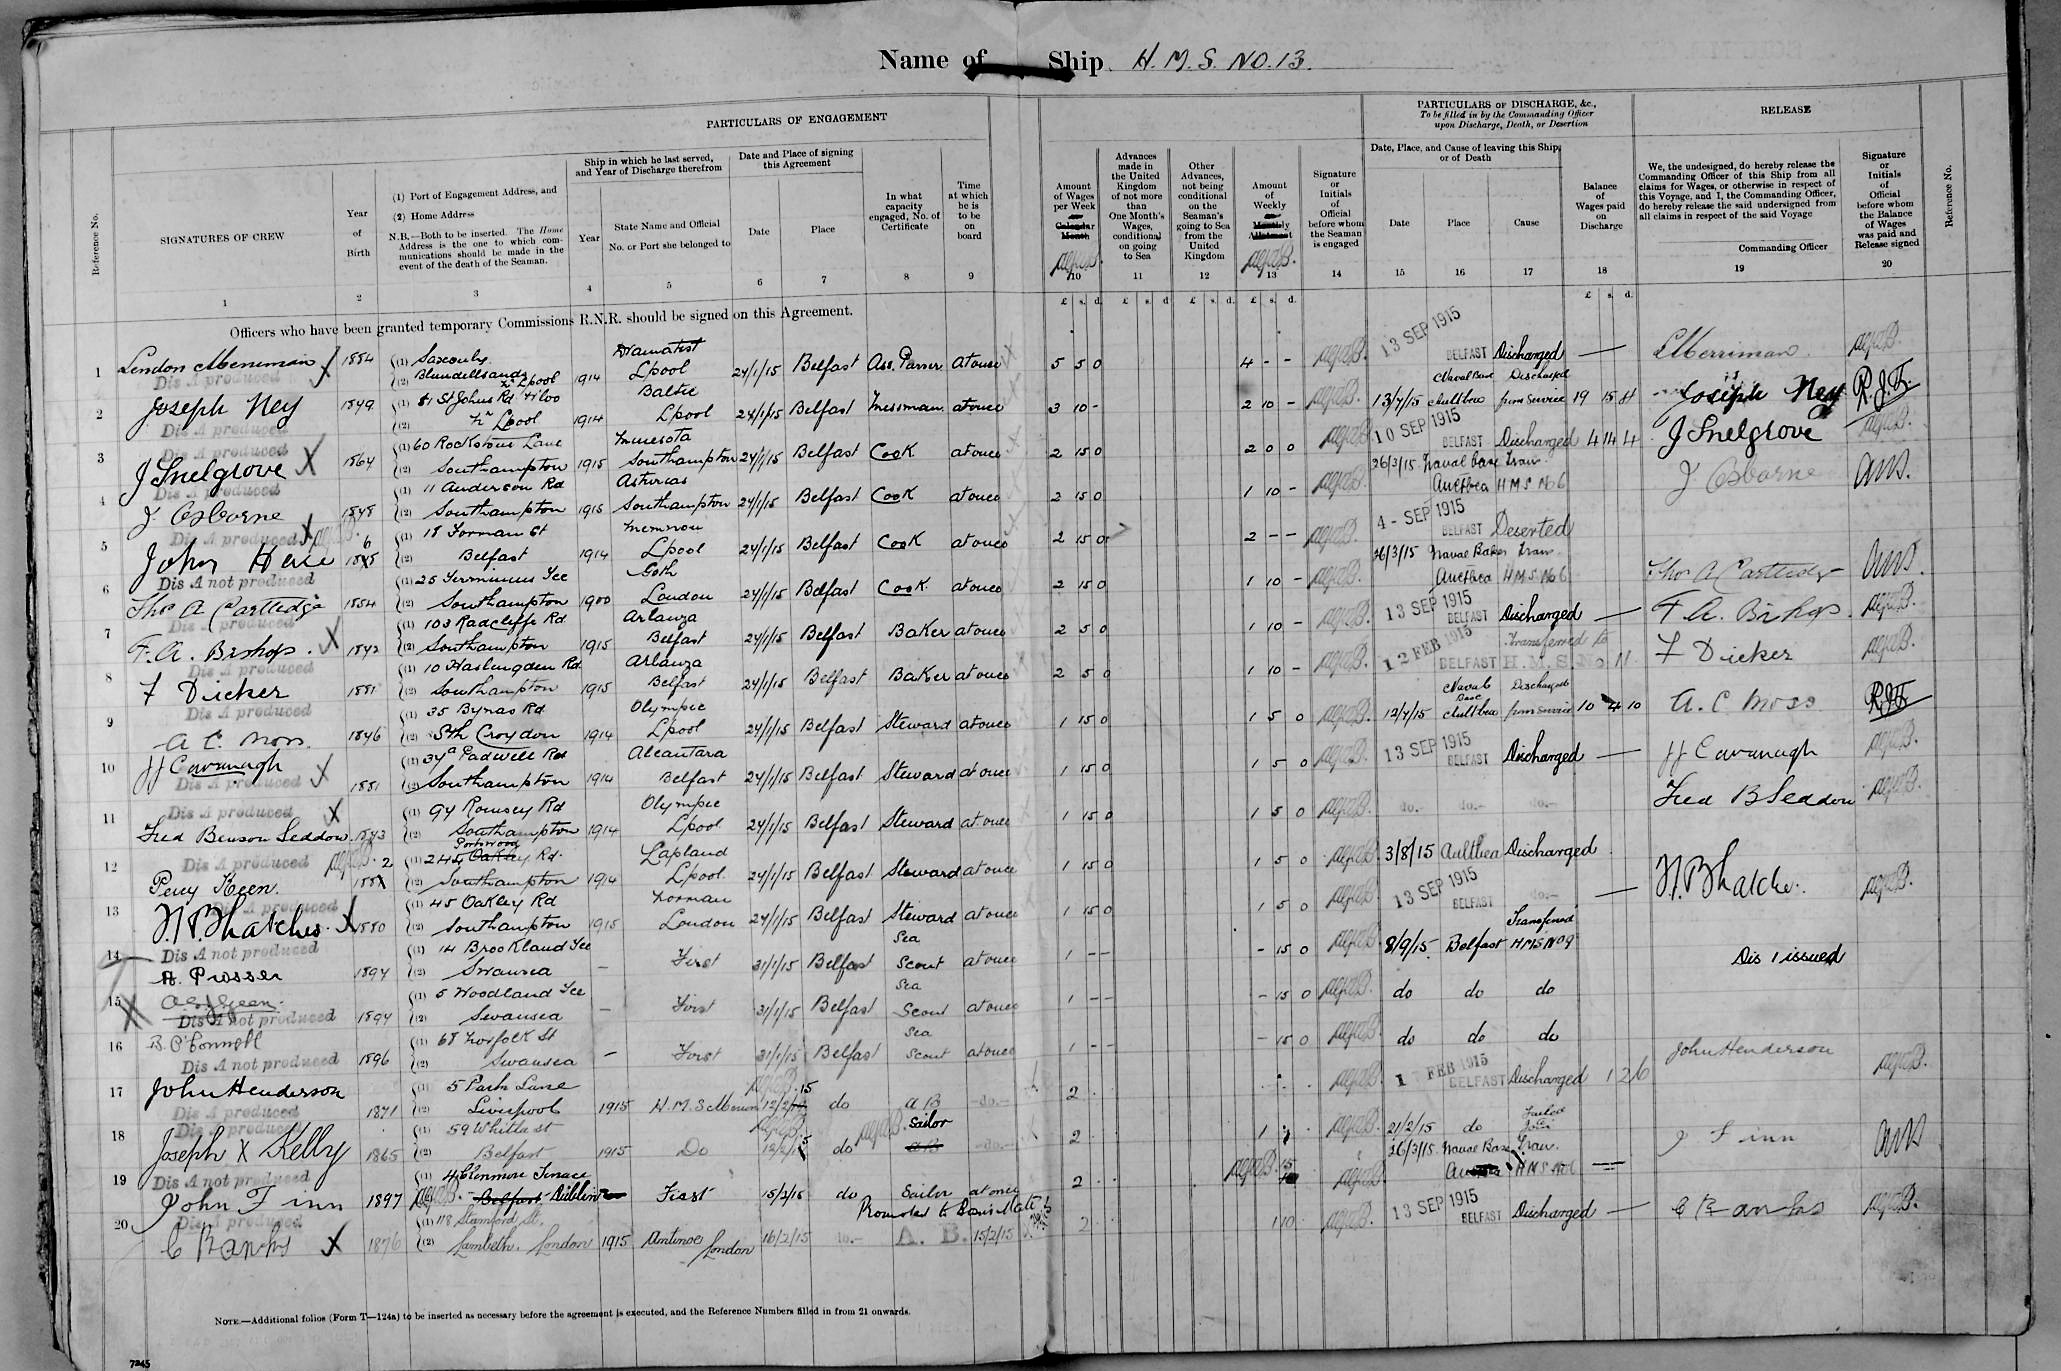 Name of Ship H.M.S. NO.13.
PARTICULARS OF ENGAGEMENT
PARTICULARS OF DISCHARGE, &c.,
To be filled in by the Commanding Officer
upon Discharge, Death, or Desertion
RELEASE
Reference No.
SIGNATURES OF CREW
Year of Birth
(1) Port of Engagement Address, and
(2) Home Address
N.B.—Both to be inserted. The Home
Address is the one to which com-
munications should be made in the
event of the death of the Seaman.
Ship in which he last served,
and Year of Discharge therefrom
Year
State Name and Official
No. or Port she belonged to
Date and Place of signing
this Agreement
Date
Place
In what capacity engaged, No. of Certificate
Time at which he is to be on board
Amount of Wages per Week
Calendar Month
Advances made in the United Kingdom of not more than One Month's Wages, conditional on going to Sea
Other Advances, not being conditional on the Seaman's going to Sea from the United Kingdom
Amount of Weekly
Monthly Allotment
Signature or Initials of Official before whom the Seaman is engaged
Date, Place, and Cause of leaving this Ship,
or of Death
Date
Place
Cause
Balance of Wages paid on Discharge
We, the undesigned, do hereby release the
Commanding Officer of this Ship from all
claims for Wages, or otherwise in respect of
this Voyage, and I, the Commanding Officer,
do hereby release the said undersigned from
all claims in respect of the said Voyage
Commanding Officer
Signature or Initials of Official before whom the Balance of Wages was paid and Release signed
Reference No.
1 2 3 4 5 6 7 8 9 10 11 12 13 14 15 16 17 18 19 20
£ s. d. £ s. d. £ s. d. £ s. d. £ s. d.
Officers who have been granted temporary Commissions R.N.R. should be signed on this Agreement.
1 London Merriman 1884 (1) (2) Blundellsands Nr Lpool 1914 Dramatist Lpool 24/1/15 Belfast Ass. Purser at once 5 5 0 4 - - 13 SEP 1915 BELFAST Discharged — LMerriman
Dis A produced
2 Joseph Ney 1879 (1) 81 St Johns Rd W'loo (2) Nr Lpool 1914 Baltic Lpool 24/1/15 Belfast Messman at once 3 10 - 2 10 - 13/7/15 Naval Base Aultbea Discharged from Service 19 15 Joseph Ney R.J.F.
Dis A produced
3 J Snelgrove X 1864 (1) 60 Rockstone Lane (2) Southampton 1915 Minnesota Southampton 24/1/15 Belfast Cook at once 2 15 0 2 0 0 10 SEP 1915 BELFAST Discharged 4 14 4 J Snelgrove
Dis A produced
4 J. Osborne 1878 (1) 11 Anderson Rd (2) Southampton 1915 Asturias Southampton 24/1/15 Belfast Cook at once 2 15 0 1 10 - 26/3/15 Naval base Aultbea Tran. H.M.S No 6 J Osborne
Dis A produced
5 John 1885 (1) 18 Forman St (2) Belfast 1914 Memnon Lpool 24/1/15 Belfast Cook at once 2 15 0 2 - - 4 - SEP 1915 BELFAST Deserted
Dis A produced
6 Thos A Cartledge 1884 (1) 25 Terminus Tce (2) Southampton 1900 Goth London 24/1/15 Belfast Cook at once 2 15 0 1 10 - 26/3/15 Naval Base Aultbea Tran. H.M.S No 6 Thos A Cartledge
Dis A not produced
7 F. A. Bishop. X (1) 103 Radcliffe Rd (2) Southampton 1915 Arlanza Belfast 24/1/15 Belfast Baker at once 2 5 0 1 10 - 13 SEP 1915 BELFAST Discharged — F. A. Bishop
Dis A produced
8 F Dicker 1881 (1) 10 Haslingden Rd (2) Southampton 1915 Arlanza Belfast 24/1/15 Belfast Baker at once 2 5 0 1 10 - 12 FEB 1915 BELFAST Transferred to H.M.S. No 11 F Dicker
Dis A produced
9 A C. Moss 1876 (1) 35 Bynes Rd (2) Sth Croydon 1914 Olympic Lpool 24/1/15 Belfast Steward at once 1 15 0 1 5 0 12/7/15 Naval Base Aultbea Discharged from Service 10 4 10 A. C Moss R.J.F.
Dis A produced
10 JJ Cavanagh X 1881 (1) 34a Padwell Rd (2) Southampton 1914 Alcantara Belfast 24/1/15 Belfast Steward at once 1 15 0 1 5 0 13 SEP 1915 BELFAST Discharged — JJ Cavanagh
Dis A produced
11 Fred Benson Seddon X (1) 94 Romsey Rd (2) Southampton 1914 Olympic Lpool 24/1/15 Belfast Steward at once 1 15 0 1 5 0 do.- do.- do.- Fred B Seddon
Dis A produced
12 Percy Keen (1) 245 Portswood Rd. (2) Southampton 1914 Lapland Lpool 24/1/15 Belfast Steward at once 1 15 0 1 5 0 3/8/15 Aultbea Discharged
Dis A produced
13 W.B. Thatcher X 1880 (1) 45 Oakley Rd (2) Southampton 1915 Norman London 24/1/15 Belfast Steward at once 1 15 0 1 5 0 13 SEP 1915 BELFAST do.- — W.B Thatcher
Dis A produced
14 A. Prosser 1897 (1) 14 Brookland Tce (2) Swansea — First 31/1/15 Belfast Sea Scout at once 1 - - - 15 0 8/9/15 Belfast Transferred HMS No 9 Dis 1 issued
Dis A not produced
15 X 1897 (1) 5 Woodland Tce (2) Swansea — First 31/1/15 Belfast Sea Scout at once 1 - - - 15 0 do do do
Dis A not produced
16 B. O'Connell 1896 (1) 68 Norfolk St (2) Swansea — First 31/1/15 Belfast Sea Scout at once 1 - - - 15 0 do do do
Dis A not produced
17 John Henderson 1871 (1) 5 Park Lane (2) Liverpool 1915 H.M.S 12/2/15 do A B do.- 2 FEB 1915 BELFAST Discharged 1 2 6 John Henderson
Dis A produced
18 Joseph X Kelly 1865 (1) 59 Whitla st (2) Belfast 1915 Do 12/2/15 do Sailor do.- 2 21/2/15 do Failed Join
Dis A produced
19 John Finn 1897 (1) 4 Glenmore Terrace Dublin First 15/2/15 do Sailor at once 2 26/3/15 Naval Base Tran. J Finn
Dis A not produced
20 C Banks X 1876 (1) 118 Stamford St. (2) Lambeth, London 1915 Antinoe London 16/2/15 do.- Promoted to Bosn Mate A. B. 15/2/15 2 1 10 13 SEP 1915 BELFAST Discharged — C Banks
Dis A produced
NOTE.—Additional folios (Form T—124a) to be inserted as necessary before the agreement is executed, and the Reference Numbers filled in from 21 onwards.
7245